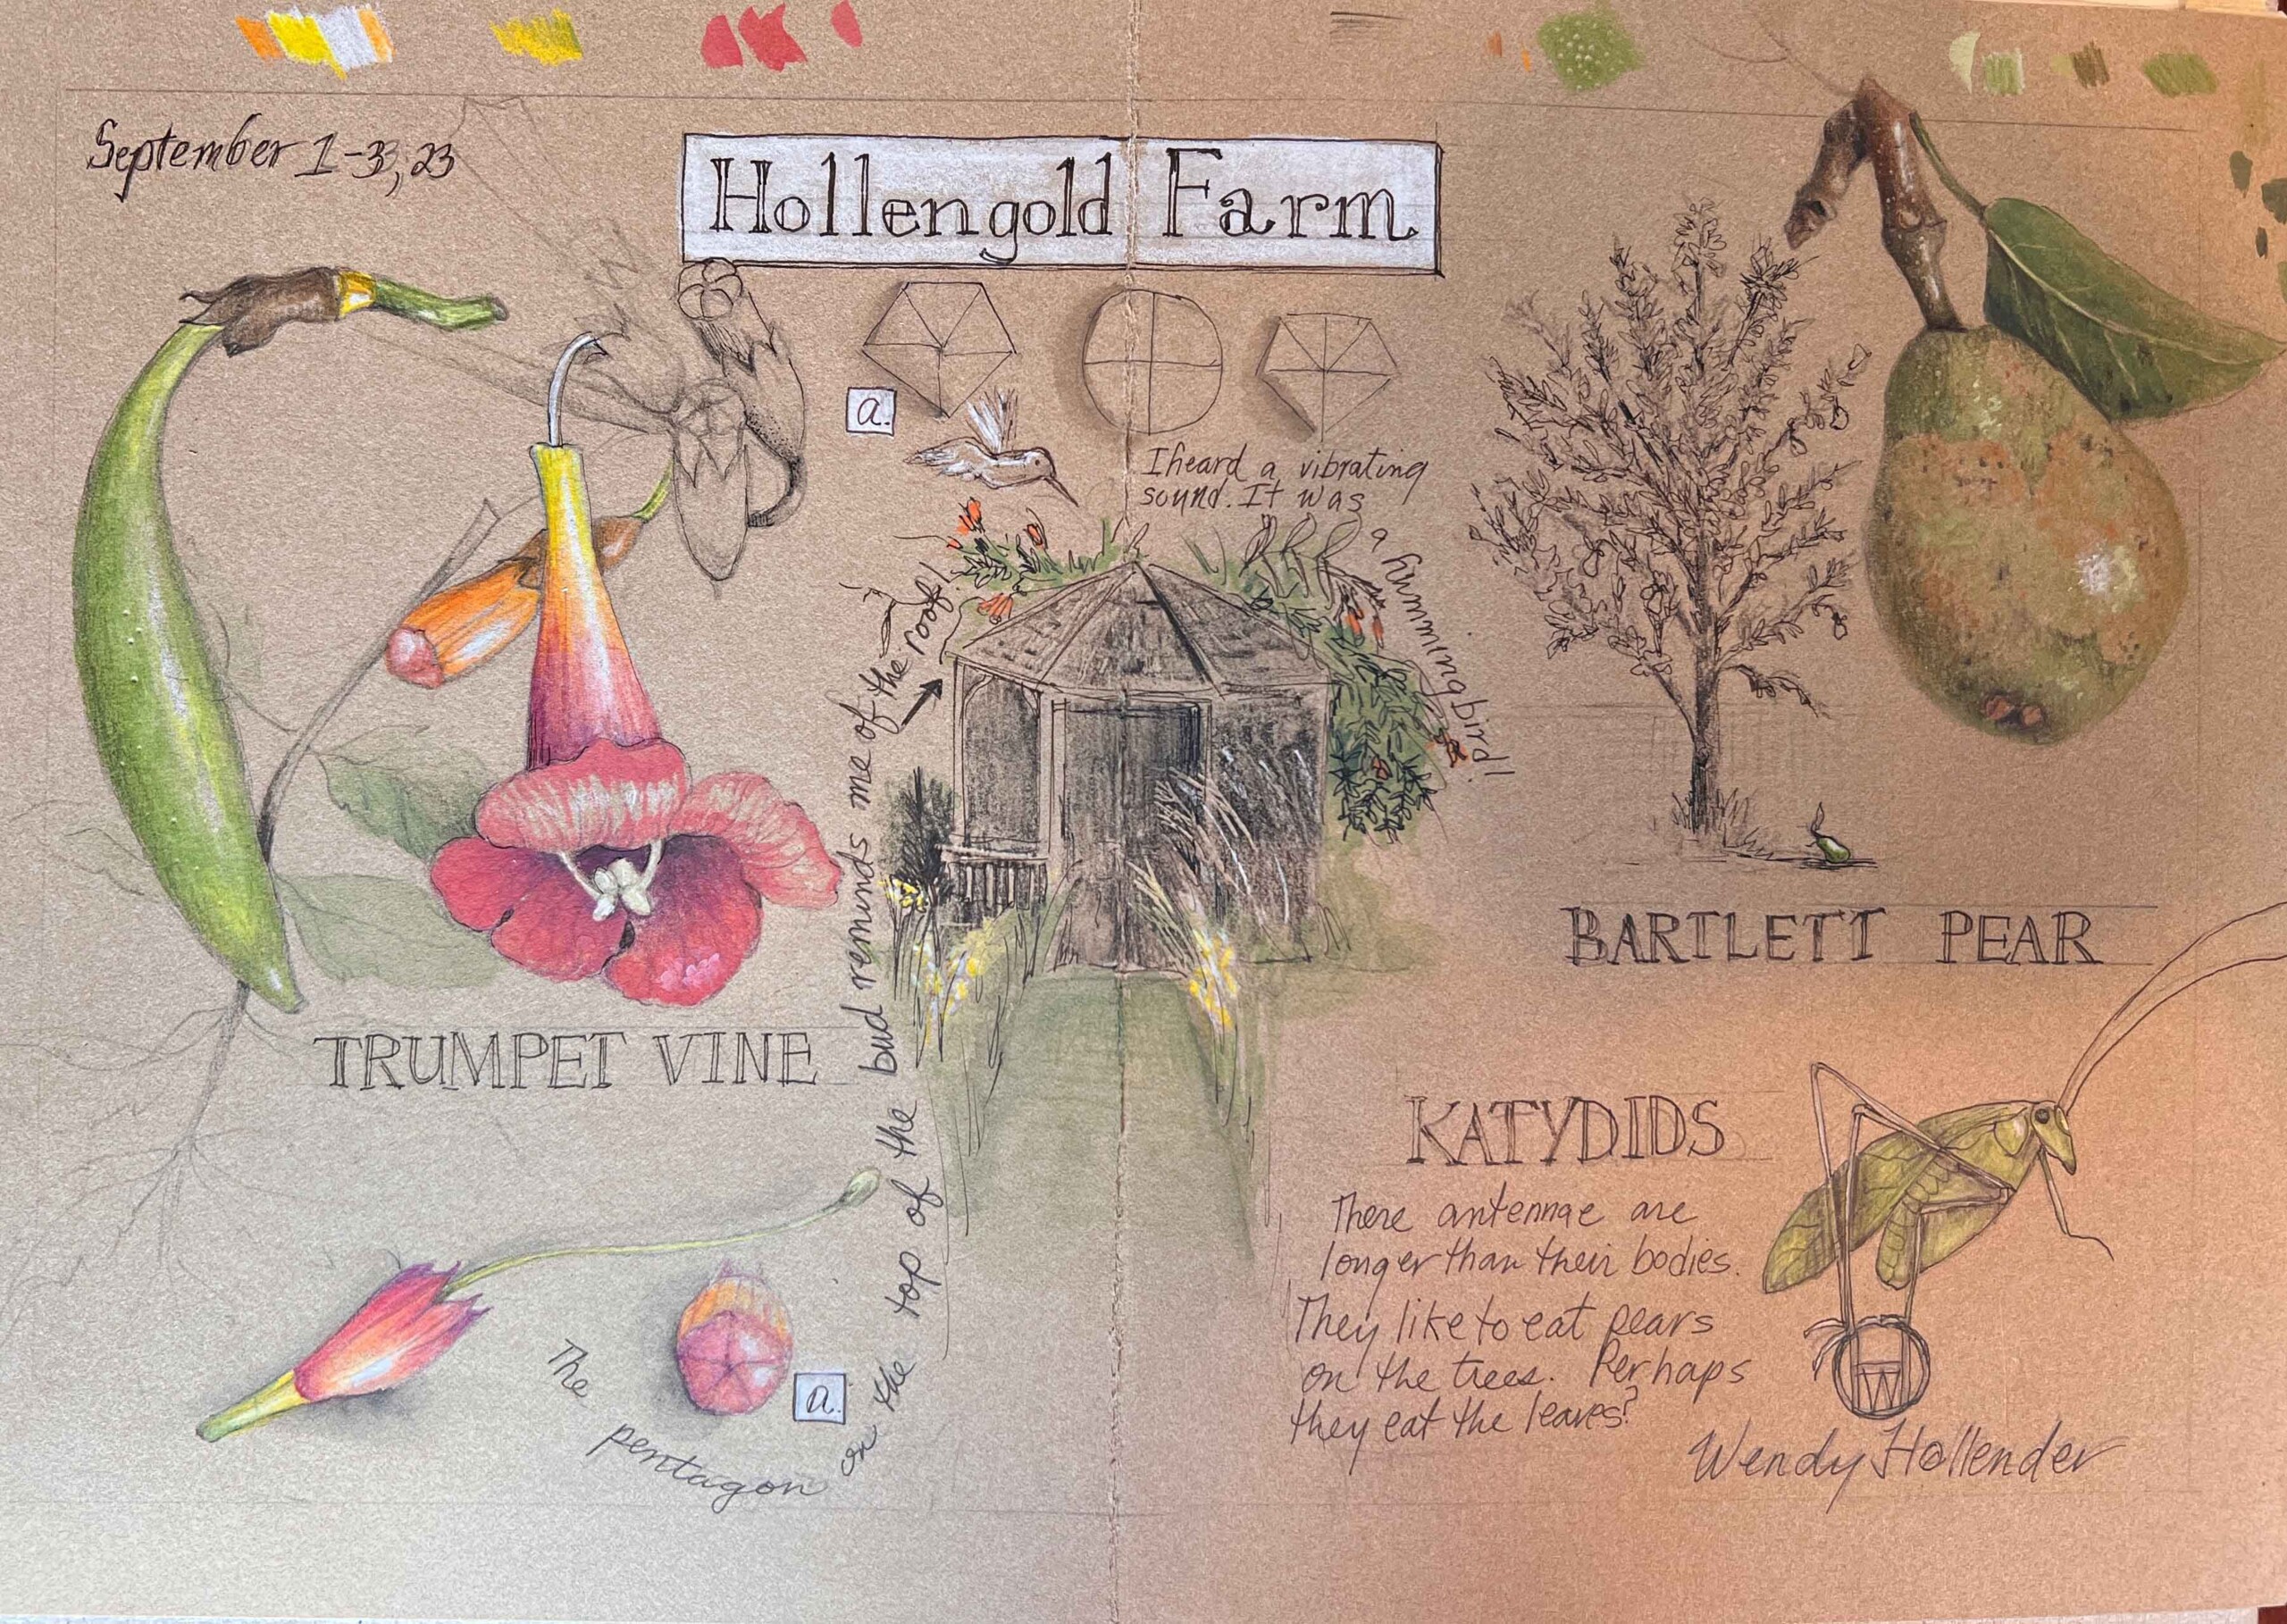 September 1-3, 23
Hollengold Farm
a.
I heard a vibrating
sound. It was
a hummingbird!
BARTLETT PEAR
TRUMPET VINE
The pentagon on the top of the bud reminds me of the roof!
a.
KATYDIDS
There antennae are
longer than their bodies.
They like to eat pears
on the trees. Perhaps
they eat the leaves?
Wendy Hollender